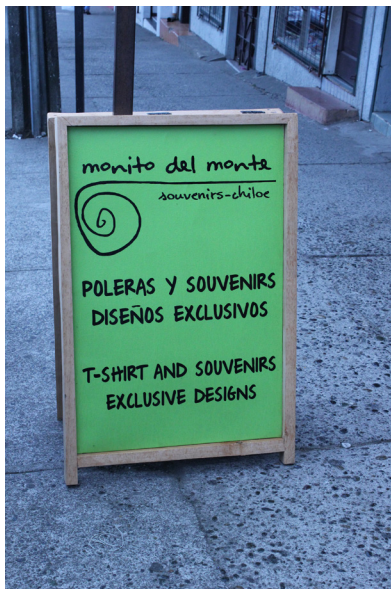 monito del monte
souvenirs-chiloe
POLERAS Y SOUVENIRS
DISEÑOS EXCLUSIVOS
T-SHIRT AND SOUVENIRS
EXCLUSIVE DESIGNS